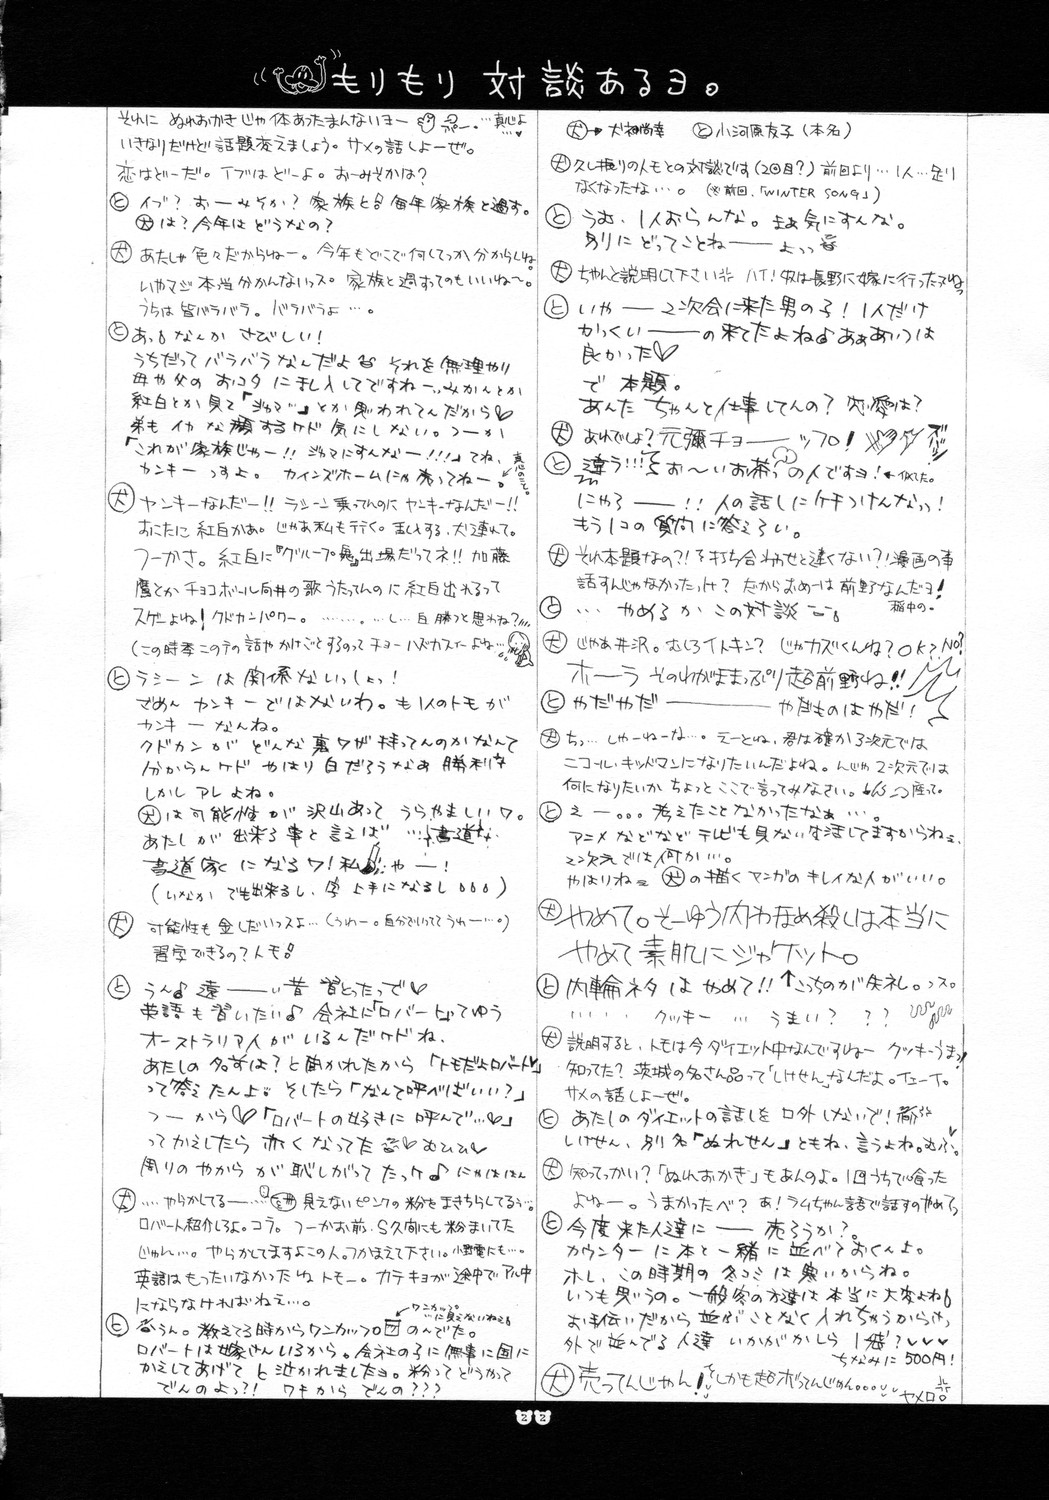 もりもり 対談あるヨ。
犬→犬神尚幸 と小河原友子(本名)
犬 久し振りのトモとの対談です(2回目?)前回より…1人…足り
なくなったな…。(※前回、「WINTER SONG」)
と うむ、1人おらんな。まぁ気にすんな。
別にどってことねーー よっっ
犬 ちゃんと説明して下さい ハイ!奴は長野に嫁に行ったのね
と いやーー2次会に来た男の子!1人だけ
かっくいーーーの来てたよね♪あぁあいつは
良かった♡
で 本題。
あんた ちゃんと仕事してんの?恋愛は?
犬 あれでしょ?元彌チョーーーッフ°ロ!
と 違う!!! お〜いお茶の人ですヨ!←似てた。
にゃろーー!!人の話しにケチつけんなっ!
もう1コの質問に答えろい。
犬 それ本題なの?!?打ち合わせと違くない?!漫画の事
話すんじゃなかったっけ?だからおめーは前野なんだヨ!
稲中の。
と … やめるか この対談
犬 じゃあ井沢。むしろイトキン?じゃカズくんね?OK? NO?
ホーラ そのわがままっぷり超前野ね!!
と やだやだーーーーーやだものはやだ!
犬 ちっ…しゃーねーな…。えーとね、君は確か3次元では
ニコール・キッドマンになりたいんだよね。んじゃ2次元では
何になりたいか ちょっとここで言ってみなさい。座って。
と えー。。。考えたことなかったなぁ…。
アニメなどなどテレビも見ない生活してますからねぇ、
2次元では何か…。
やはりねぇ 犬の描くマンガのキレイな人がいい。
犬 やめて。そーゆう内わなめ殺しは本当に
やめて素肌にジャケット。
と 内輪ネタはやめて!!↑こっちのが失礼。っス。
‥‥‥ クッキー … うまい? ? ?
犬 説明すると、トモは今ダイエット中なんですねー クッキーうまっ!
知ってた?茨城の名さん品って「しけせん」なんだよ。イェーイ。
サメの話しよーぜ。
と あたしのダイエットの話しを口外しないで!
しけせん、別名「ぬれせん」ともね、言うよね。むふ。
犬 知ってっかい?「ぬれおかき」もあんのよ。1回うちで食った
よねー。うまかったべ?あ!ラムちゃん語で話すのやめてっ
と 今度来た人達にーー売ろうか?
カウンターに本と一緒に並べておくんよ。
ホレ、この時期の冬コミは寒いからね。
いつも思うの。一般客の方達は本当に大変よね
お手伝いだから並ぶことなく入れちゃうからさ
外で並んでる人達 いかがかしら 1杯?♥♥♥
ちなみに500円!
犬 売ってんじゃん!しかも超ボってんじゃん。。。
ヤメロ
それに ぬれおかきじゃ体あったまんないヨー
いきなりだけど話題変えましょう。サメの話しよーぜ。
恋はどーだ。イブはどーよ。おーみそかは?
と イブ?おーみそか?家族と 毎年家族と過す。
犬は?今年はどうなの?
犬 あたしゃ色々だからねー。今年もどこで何してっか分からしね。
いやマジ本当分かんないっス。家族と過すってのもいいね〜。
うちは皆バラバラ。バラバラよ…。
と あっなんか さびしい!
うちだってバラバラなんだよ それを無理やり
母や父のおコタにまじ入してですねー…みかんとか
紅白とか見て「ジャマ…」とか思われてんだから♡
弟もイヤな顔するケド気にしない。つーか
「これが家族じゃー!!ジャマにすんなー!!!」てね、
カンキーっすよ。カインズホームにゃ売ってねー。
犬 ヤンキーなんだー!!ラシーン乗ってんのにヤンキーなんだー!!
おこたに紅白かぁ。じゃあ私も行く。犬連れて。
つーかさ。紅白に『グループ魂』出場だってネ!!加藤
鷹とかチョコボール向井の歌うたってんのに紅白出れるって
スゲーよね!クドカンパワー。………し…白勝つと思わね?
(この時季この手の話やかけごとするのってチョーハズカスィーよね…
と ラシーンは関係ないっしょっ!
でめん カンキーではないわ。も1人のトモが
カンキーなんね。
クドカンがどんな裏ワザ持ってんのかなんて
分からんケド やはり白だろうなぁ 勝利は
しかしアレよね。
犬は可能性が沢山あって うらやましいワ。
あたしが出来る事と言えば …書道な
書道家になるワ!私ゃー!
(いなかでも出来るし、字上手になるし)
犬 可能性も金しだいっスよ…(うわー。自分でいっててうわー…。)
習字できるの?トモ。
と うん♪遠ーーい昔 習とったっで♡
英語も習いたい♪会社に「ロバート」ってゆう
オーストラリア人がいるんだケドね、
あたしの名前は?と聞かれたから「トモだよロバート♥」
って答えたんよ。そしたら「なんて呼べばいい?」
つーから♡「ロバートの好きに呼んで…♡」
ってかえしたら赤くなってた ♡むひひ♡
周りのやからが恥しがってたっケ♪にゃははん
犬 …やらかしてるーー… 見えないピンクの粉をまきちらしてるぅ…
ロバート紹介しろよ。コラ。つーかお前、S久間にも粉まいてた
じゃん…。やらかしてますよこの人。つかまえて下さい。小野寛にも…。
英語はもったいなかったねトモー。カテキョが途中でアル中
にならなければねえ…。
と うん。教えてる時からワンカップ のんでた。
←ワンカップ…に見えないねぇ
ロバートは嫁さんいるから。会社の子に無事に国に
かえしてあげて と泣かれましたヨ。粉ってどうやって
でんのよっ?!ワキからでんの???
22